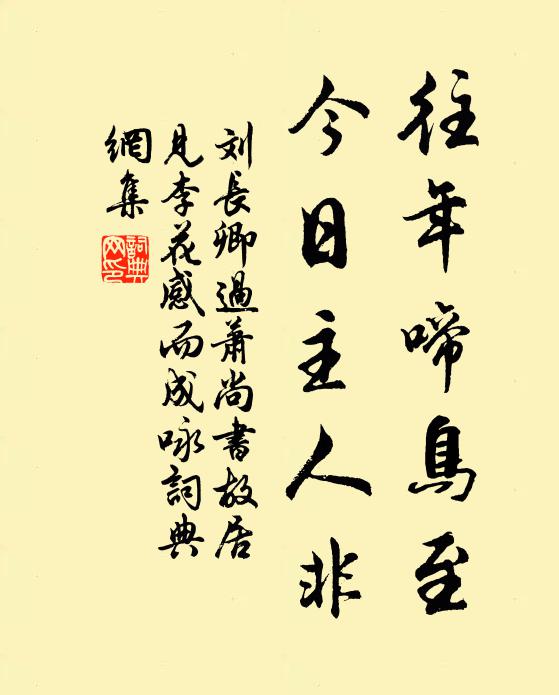 往年啼鳥至
今日主人非
刘長卿過萧尚書故居
見李花感而成咏詞典
網集
詞典網印